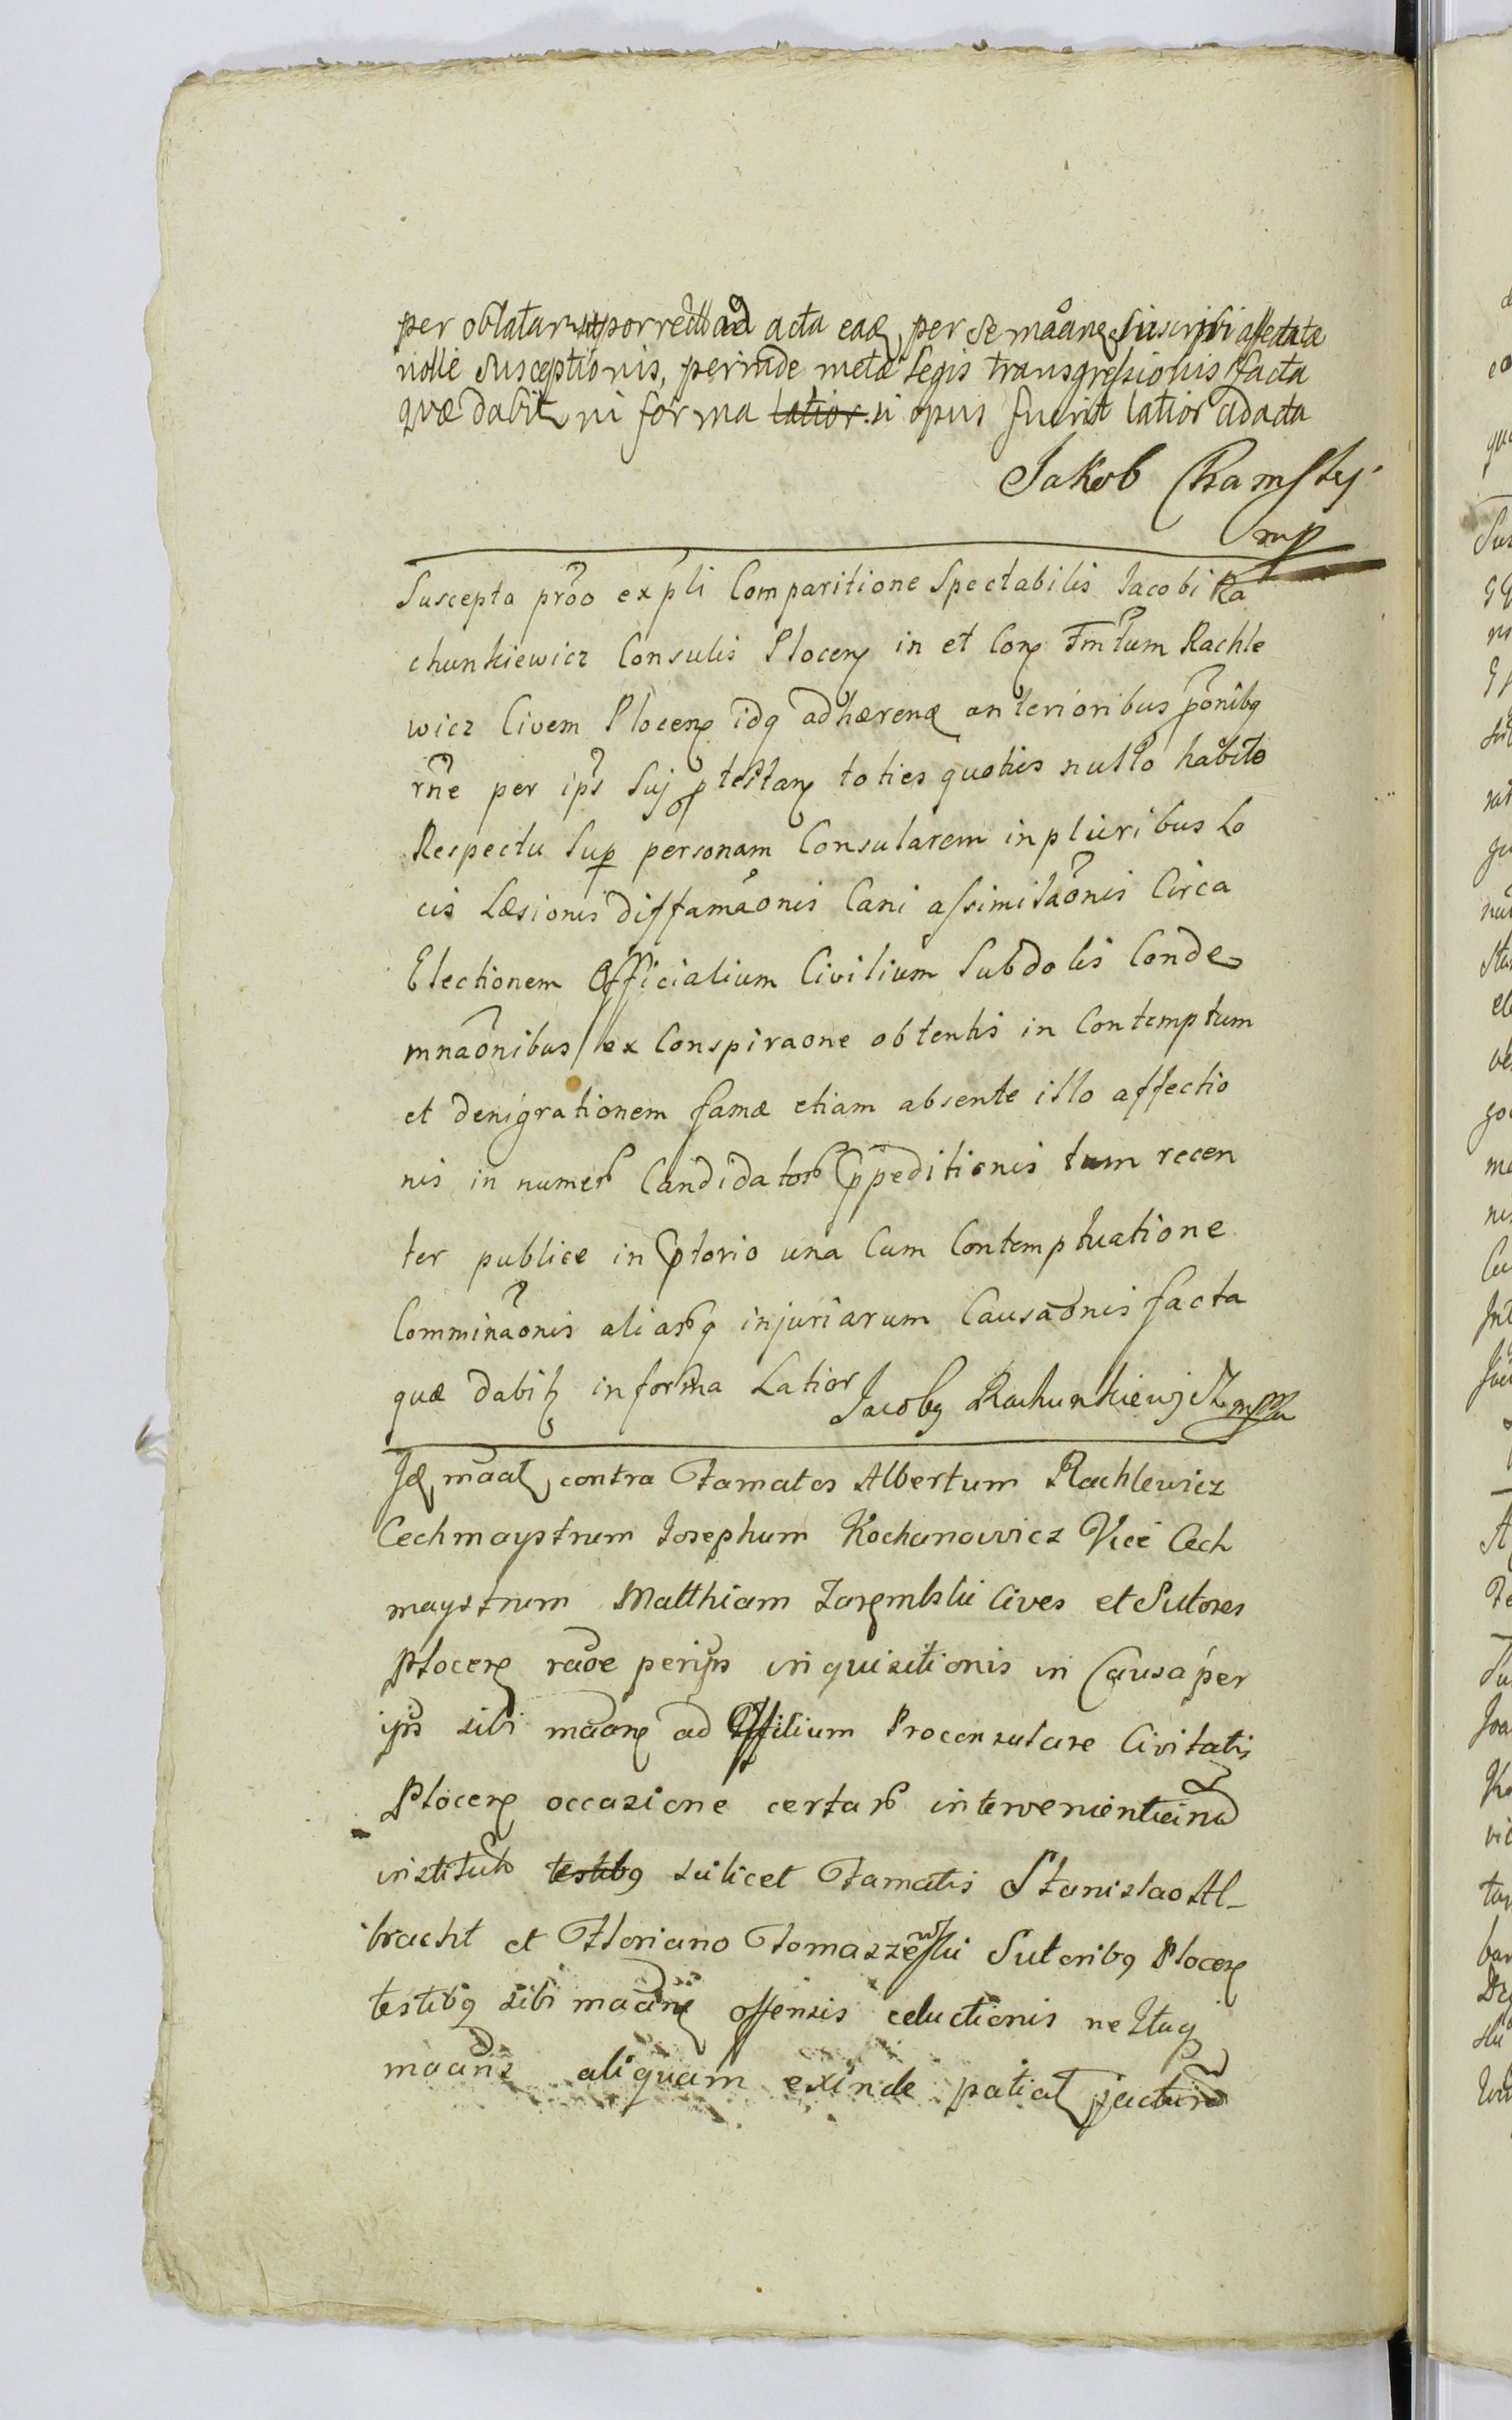 per oblatam porrectā ad acta ead per se māanē suscribi affectata
nolle susceptionis, perinde metæ Legis transgressionis facta
quæ dabit in forma latior si opus fuerit latior ad acta
Jakob Chamsky
mp
Suscepta prōo expli Comparitione Spectabilis Jacobi Ra
chunkiewicz Consulis Plocen in et Con Fmtum Rachle
wicz Civem Plocen idq adhærend anterioribus pōnibq
rñe per ips suj ptestan toties quoties nullo habito
Respectu Sup personam Consularem in pluribus Lo
cis Læsionis diffamāonis Cani assimilāonis Circa
Electionem Officialium Civilium Subdolis Conde
mnāonibus ex Conspiraone obtentis in Contemptum
et denigrationem famæ etiam absente illo affectio
nis in numer Candidator ppeditionis tum recen
ter publice in ptorio una Cum Contemptuatione
Commināonis aliarq injuriarum Causāonis facta
quæ dabit in forma Latior Jacobq Rachunkiewicz mpa
Id māat contra Famatos Albertum Rachlewicz
Cechmaystrum Josephum Kochanowicz Vice Cech
maystrum Matthiam Zarembski Cives et Sutores
Plocen rāoe per ips inquisitionis in Causa per
ips sibi māan ad Officium Proconsulare Civitatis
Plocen occasione certar intervenientium
institut testibq scilicet Famatis Stanislao Al-
bracht et Floriano Tomaszewski Sutoribq Plocen
testibq sibi māan offensis eductionis ne Itaq
māans aliquam exinde patiat jacturā